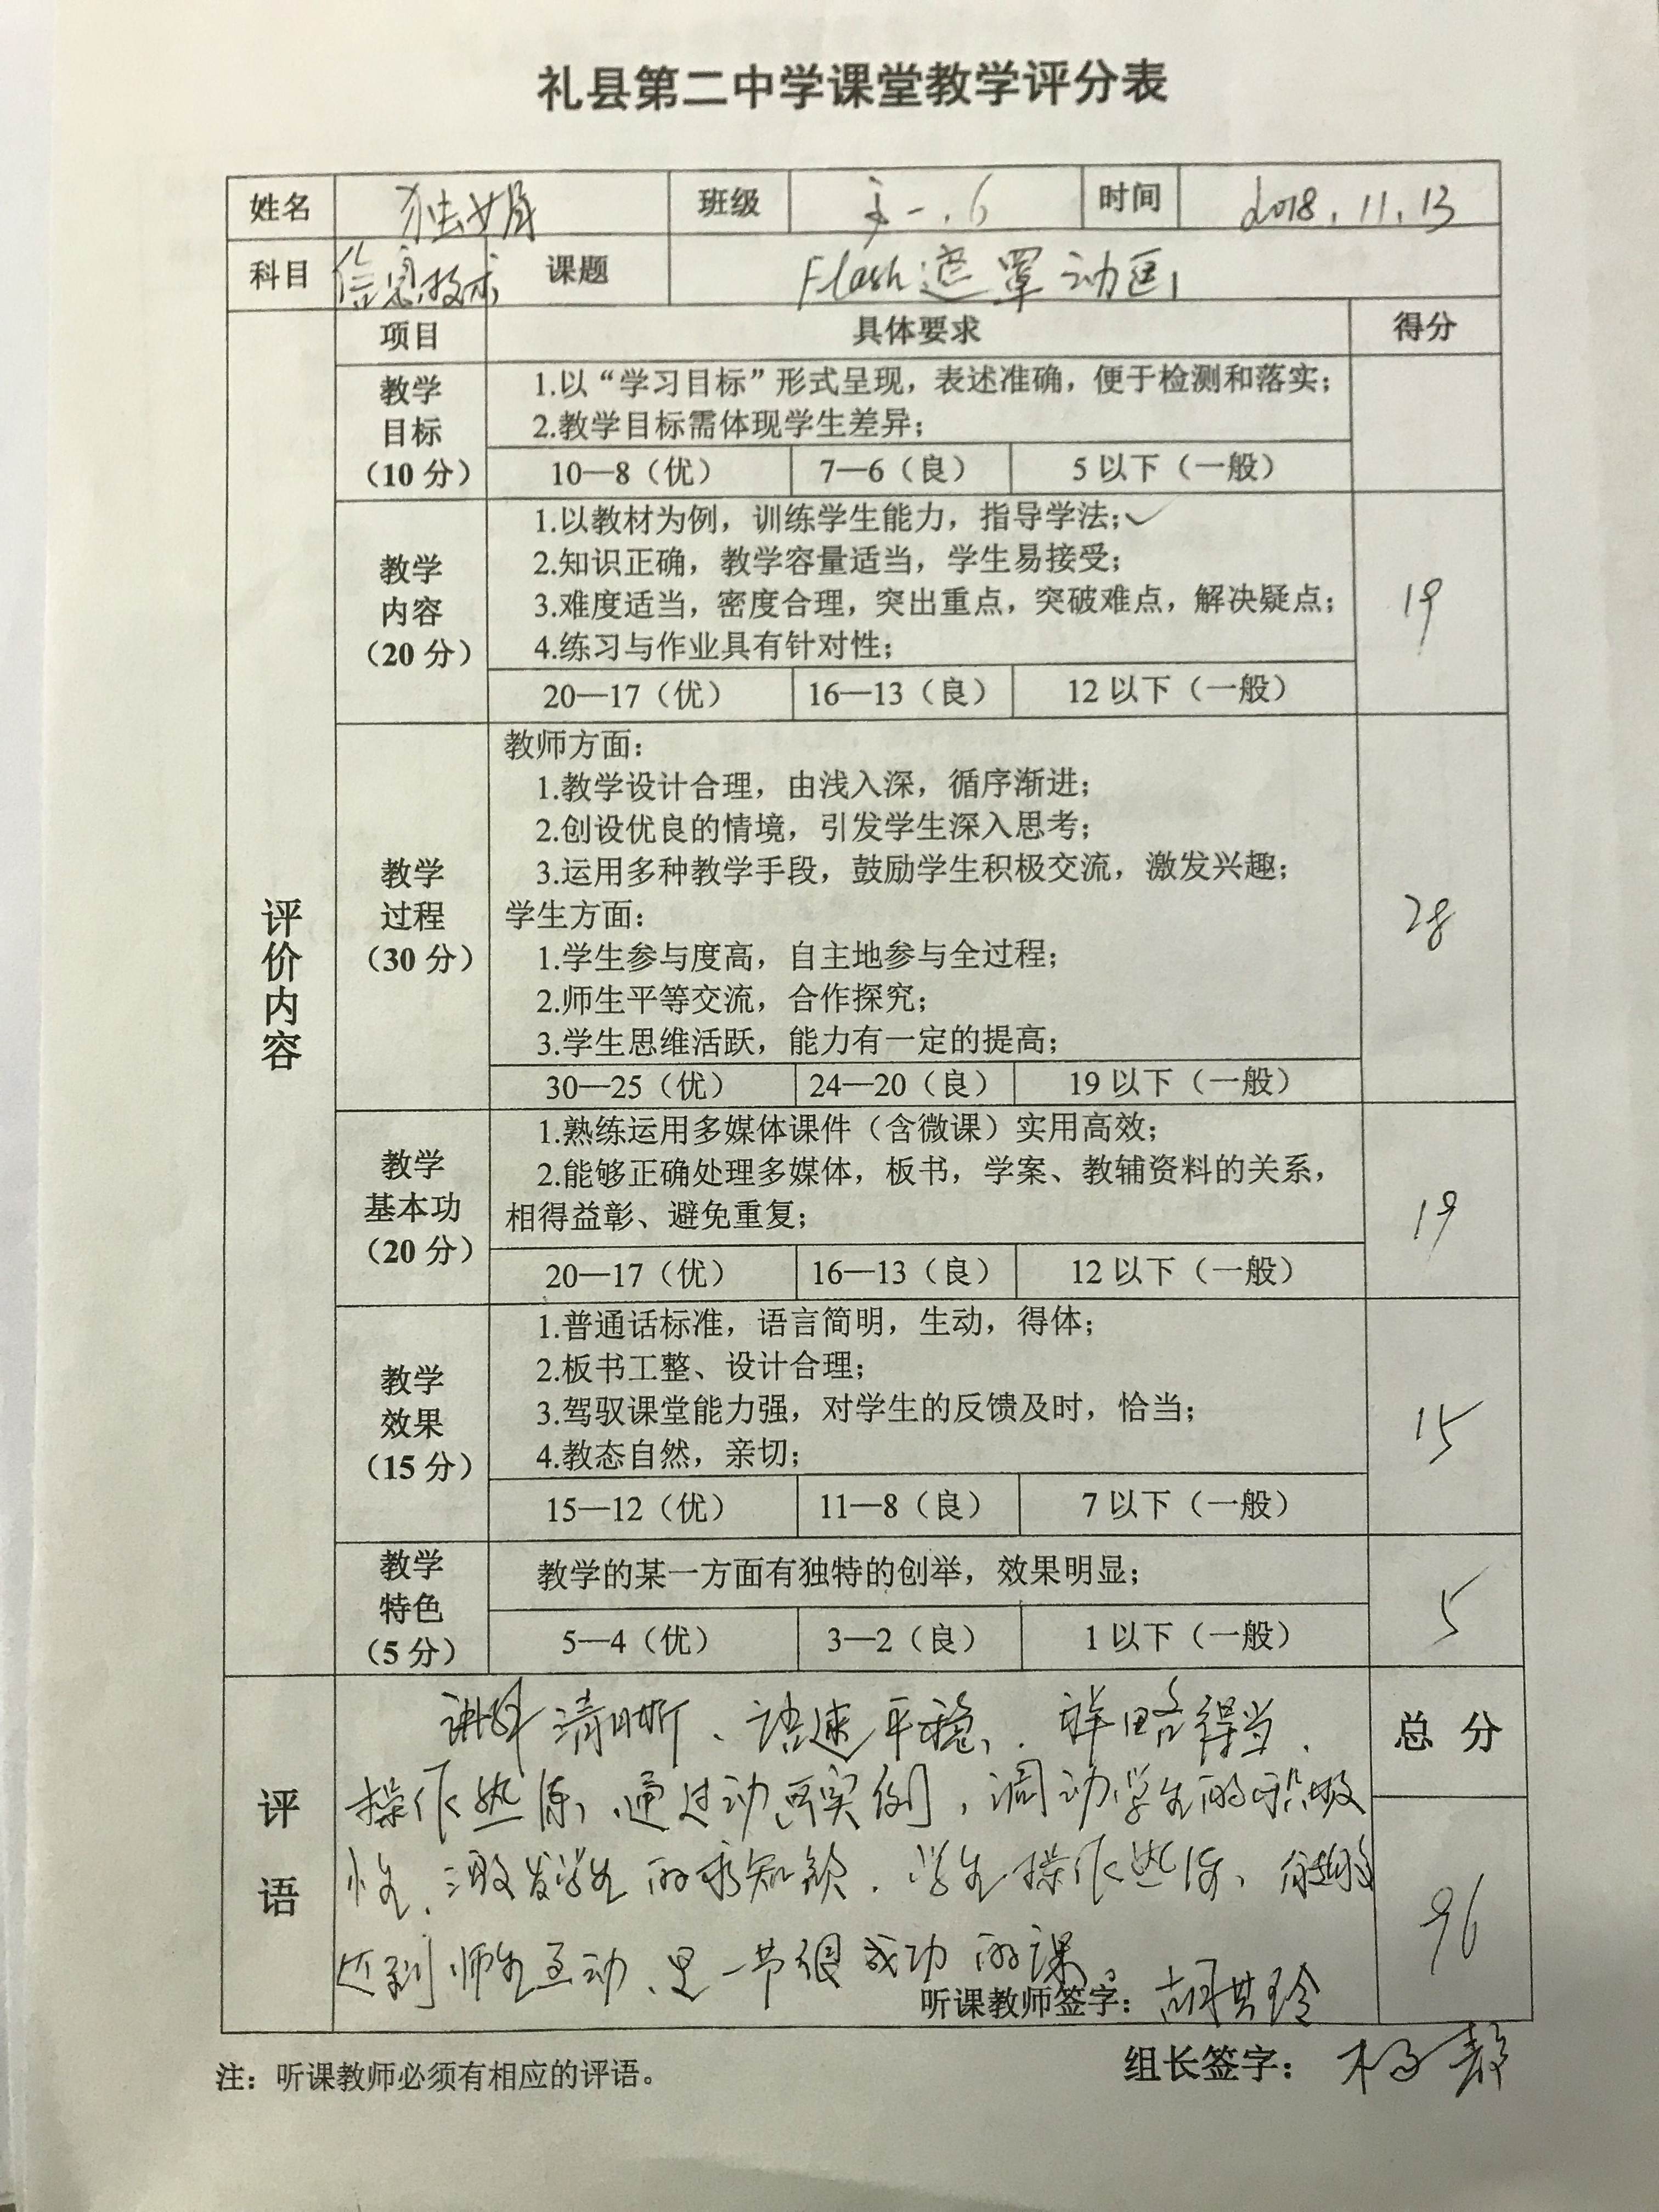 礼县第二中学课堂教学评分表
姓名 独娟 班级 高一.6 时间 2018.11.13
科目 信息技术 课题 Flash遮罩动画
项目 具体要求 得分
评价内容
教学目标（10分）
1.以“学习目标”形式呈现，表述准确，便于检测和落实；
2.教学目标需体现学生差异；
10—8（优） 7—6（良） 5以下（一般）
教学内容（20分）
1.以教材为例，训练学生能力，指导学法；✓
2.知识正确，教学容量适当，学生易接受；
3.难度适当，密度合理，突出重点，突破难点，解决疑点；
4.练习与作业具有针对性；
19
20—17（优） 16—13（良） 12以下（一般）
教学过程（30分）
教师方面：
1.教学设计合理，由浅入深，循序渐进；
2.创设优良的情境，引发学生深入思考；
3.运用多种教学手段，鼓励学生积极交流，激发兴趣；
学生方面：
1.学生参与度高，自主地参与全过程；
2.师生平等交流，合作探究；
3.学生思维活跃，能力有一定的提高；
28
30—25（优） 24—20（良） 19以下（一般）
教学基本功（20分）
1.熟练运用多媒体课件（含微课）实用高效；
2.能够正确处理多媒体，板书，学案、教辅资料的关系，
相得益彰、避免重复；
19
20—17（优） 16—13（良） 12以下（一般）
教学效果（15分）
1.普通话标准，语言简明，生动，得体；
2.板书工整、设计合理；
3.驾驭课堂能力强，对学生的反馈及时，恰当；
4.教态自然，亲切；
15
15—12（优） 11—8（良） 7以下（一般）
教学特色（5分）
教学的某一方面有独特的创举，效果明显；
5
5—4（优） 3—2（良） 1以下（一般）
评语
讲解清晰、语速平稳、详略得当、
操作熟练，通过动画实例，调动学生的积极
性、激发学生的求知欲．学生操作熟练、能够
达到师生互动、是一节很成功的课。
听课教师签字：胡其玲
总分
96
注：听课教师必须有相应的评语。
组长签字：杨